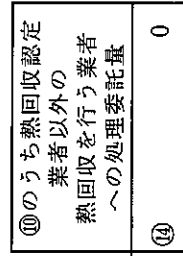 ⑩のうち熱回収認定
業者以外の
熱回収を行う業者
への処理委託量
⑭ 0